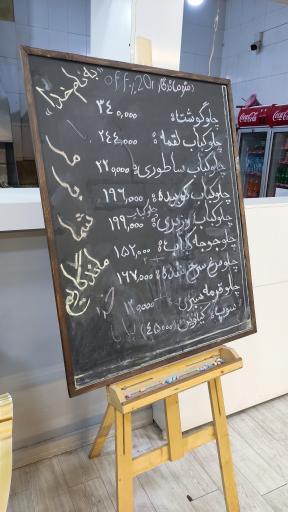 به نام خدا
off ٪20
چلوگوشت: ۳۴۰,۰۰۰
چلوکباب لقمه: ۲۴۴,۰۰۰
چلوکباب ساطوری: ۲۲۰,۰۰۰
چلوکباب کوبیده: ۱۹۶,۰۰۰
چلوکباب وزیری: ۱۹۹,۰۰۰
چلوجوجه کباب: ۱۵۲,۰۰۰
چلومرغ سرخ شده: ۱۶۷,۰۰۰
چلو قرمه سبزی
سوپ: (۴۵,۰۰۰)
ما
با
شما
ماندگاریم
Coca-Cola